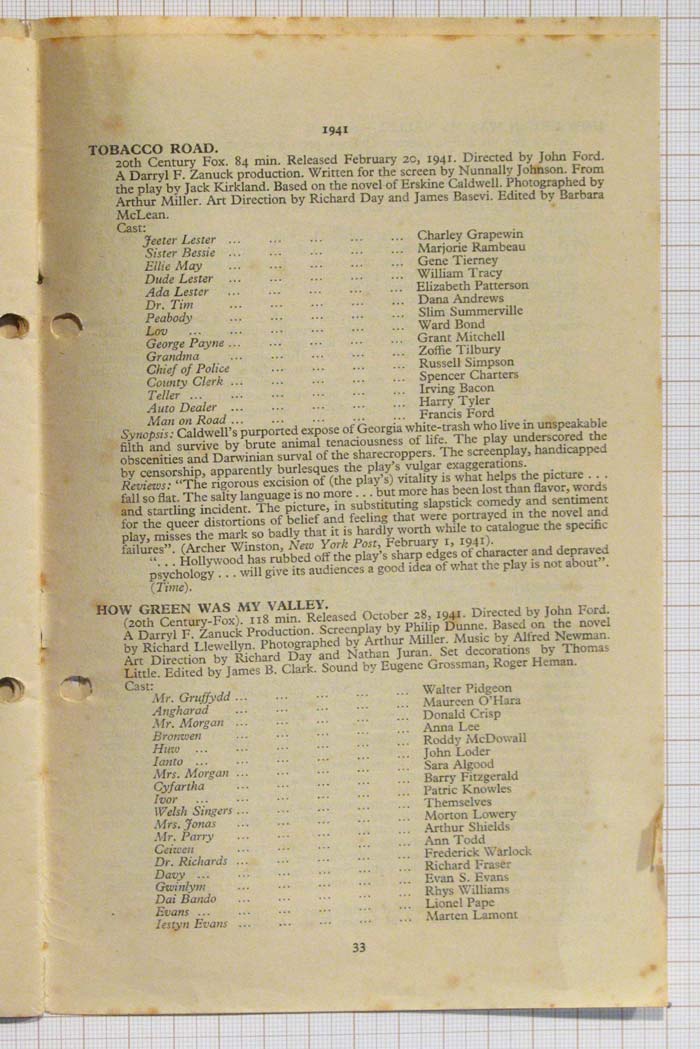 1941
TOBACCO ROAD.
20th Century Fox. 84 min. Released February 20, 1941. Directed by John Ford.
A Darryl F. Zanuck production. Written for the screen by Nunnally Johnson. From
the play by Jack Kirkland. Based on the novel of Erskine Caldwell. Photographed by
Arthur Miller. Art Direction by Richard Day and James Basevi. Edited by Barbara
McLean.
Cast:
Jeeter Lester ... ... ... ... ... Charley Grapewin
Sister Bessie ... ... ... ... ... Marjorie Rambeau
Ellie May ... ... ... ... ... Gene Tierney
Dude Lester ... ... ... ... ... William Tracy
Ada Lester ... ... ... ... ... Elizabeth Patterson
Dr. Tim ... ... ... ... ... Dana Andrews
Peabody ... ... ... ... ... Slim Summerville
Lov ... ... ... ... ... ... Ward Bond
George Payne ... ... ... ... ... Grant Mitchell
Grandma ... ... ... ... ... Zoffie Tilbury
Chief of Police ... ... ... ... ... Russell Simpson
County Clerk ... ... ... ... ... Spencer Charters
Teller ... ... ... ... ... ... Irving Bacon
Auto Dealer ... ... ... ... ... Harry Tyler
Man on Road ... ... ... ... ... Francis Ford
Synopsis: Caldwell's purported expose of Georgia white-trash who live in unspeakable
filth and survive by brute animal tenaciousness of life. The play underscored the
obscenities and Darwinian surval of the sharecroppers. The screenplay, handicapped
by censorship, apparently burlesques the play's vulgar exaggerations.
Reviews: "The rigorous excision of (the play's) vitality is what helps the picture . . .
fall so flat. The salty language is no more . . . but more has been lost than flavor, words
and startling incident. The picture, in substituting slapstick comedy and sentiment
for the queer distortions of belief and feeling that were portrayed in the novel and
play, misses the mark so badly that it is hardly worth while to catalogue the specific
failures". (Archer Winston, New York Post, February 1, 1941).
". . . Hollywood has rubbed off the play's sharp edges of character and depraved
psychology . . . will give its audiences a good idea of what the play is not about".
(Time).
HOW GREEN WAS MY VALLEY.
(20th Century-Fox). 118 min. Released October 28, 1941. Directed by John Ford.
A Darryl F. Zanuck Production. Screenplay by Philip Dunne. Based on the novel
by Richard Llewellyn. Photographed by Arthur Miller. Music by Alfred Newman.
Art Direction by Richard Day and Nathan Juran. Set decorations by Thomas
Little. Edited by James B. Clark. Sound by Eugene Grossman, Roger Heman.
Cast:
Mr. Gruffydd ... ... ... ... ... Walter Pidgeon
Angharad ... ... ... ... ... Maureen O'Hara
Mr. Morgan ... ... ... ... ... Donald Crisp
Bronwen ... ... ... ... ... Anna Lee
Huw ... ... ... ... ... ... Roddy McDowall
Ianto ... ... ... ... ... ... John Loder
Mrs. Morgan ... ... ... ... ... Sara Algood
Cyfartha ... ... ... ... ... Barry Fitzgerald
Ivor ... ... ... ... ... ... Patric Knowles
Welsh Singers ... ... ... ... ... Themselves
Mrs. Jonas ... ... ... ... ... Morton Lowery
Mr. Parry ... ... ... ... ... Arthur Shields
Ceiwen ... ... ... ... ... Ann Todd
Dr. Richards ... ... ... ... ... Frederick Warlock
Davy ... ... ... ... ... ... Richard Fraser
Gwinlym ... ... ... ... ... Evan S. Evans
Dai Bando ... ... ... ... ... Rhys Williams
Evans ... ... ... ... ... ... Lionel Pape
Iestyn Evans ... ... ... ... ... Marten Lamont
33